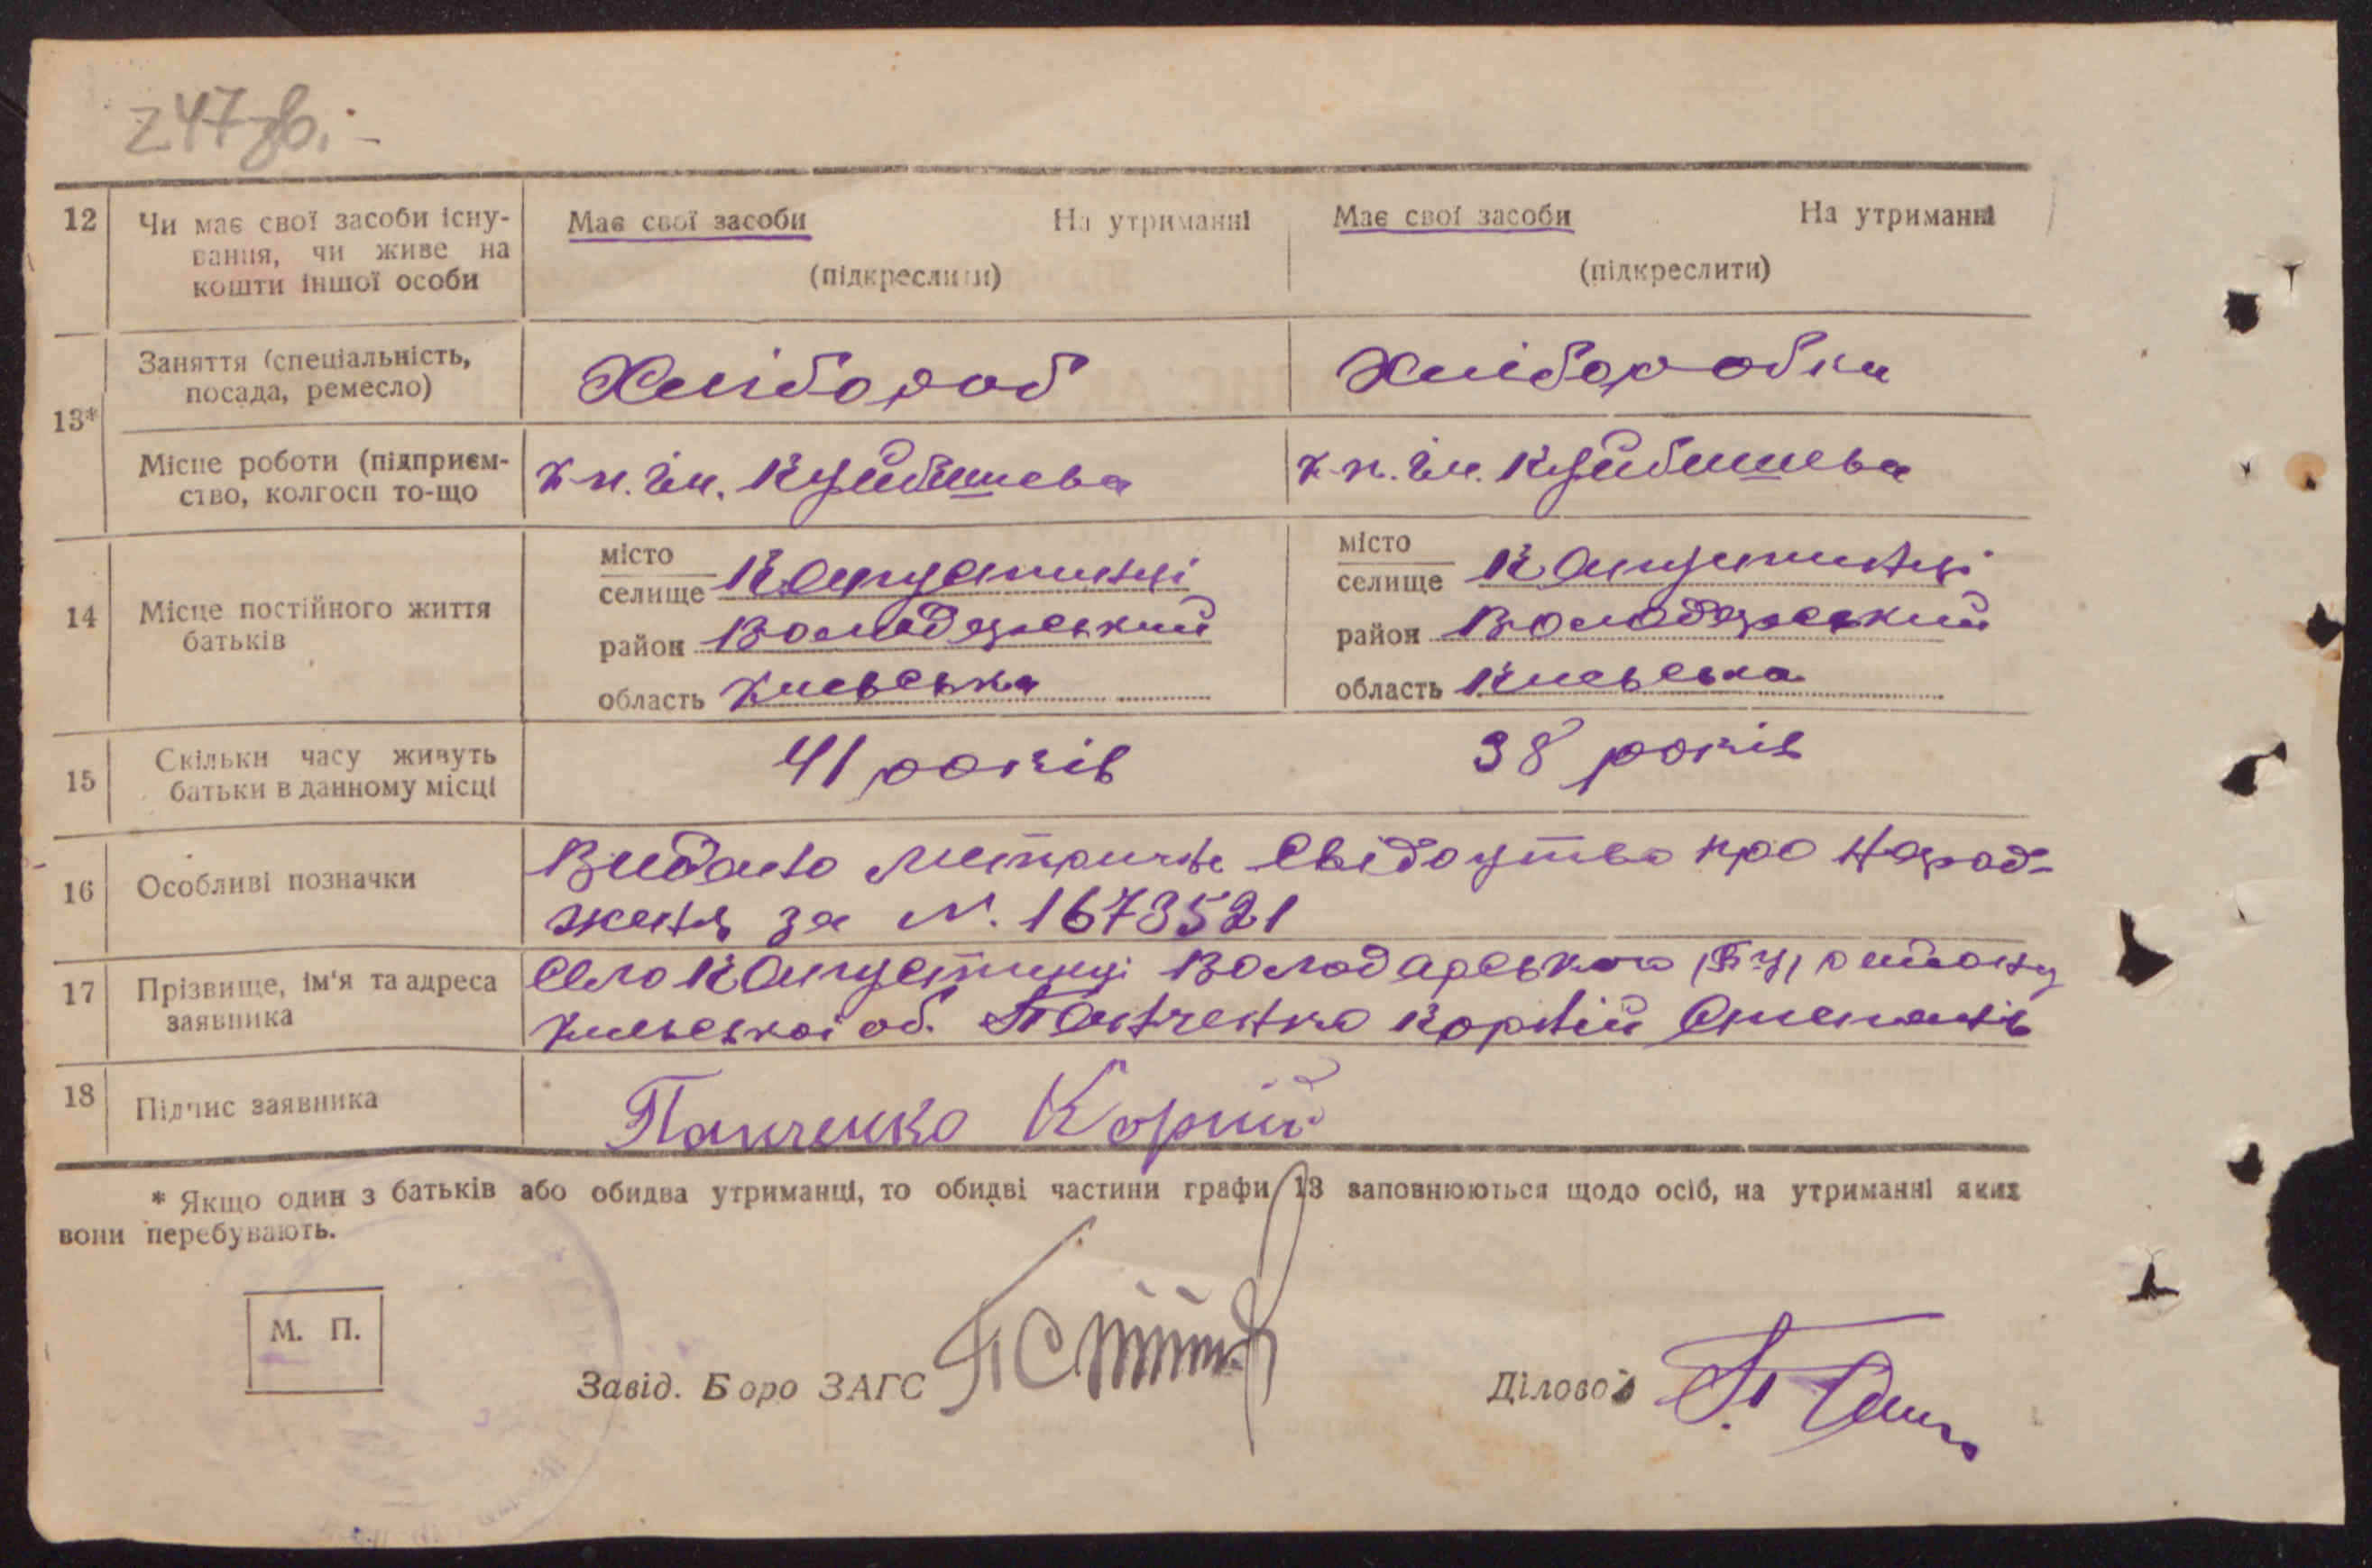 247зв.
12 Чи має свої засоби існу- Має свої засоби На утриманні Має свої засоби На утриманні
вання, чи живе на
кошти іншої особи (підкреслити) (підкреслити)
Заняття (спеціальність, Хлібороб Хліборобка
посада, ремесло)
13*
Місце роботи (підприєм- к-п. ім. Куйбишева к-п. ім. Куйбишева
ство, колгосп то-що
місто місто
селище Капустинці селище Капустинці
14 Місце постійного життя район Володарський район Володарський
батьків
область Киевська область Киевська
15 Скільки часу живуть 41 років 38 років
батьки в данному місці
16 Особливі позначки Видано метричне свідоцтво про народ-
ження за №. 1673521
17 Прізвище, ім'я та адреса Село Капустинці Володарського району
заявника Киевської об. Панченко Корній Степанів
18 Підпис заявника Панченко Корній
* Якщо один з батьків або обидва утриманці, то обидві частини графи 13 заповнюються щодо осіб, на утриманні яких
вони перебувають.
М. П.
Завід. Боро ЗАГС Діловод